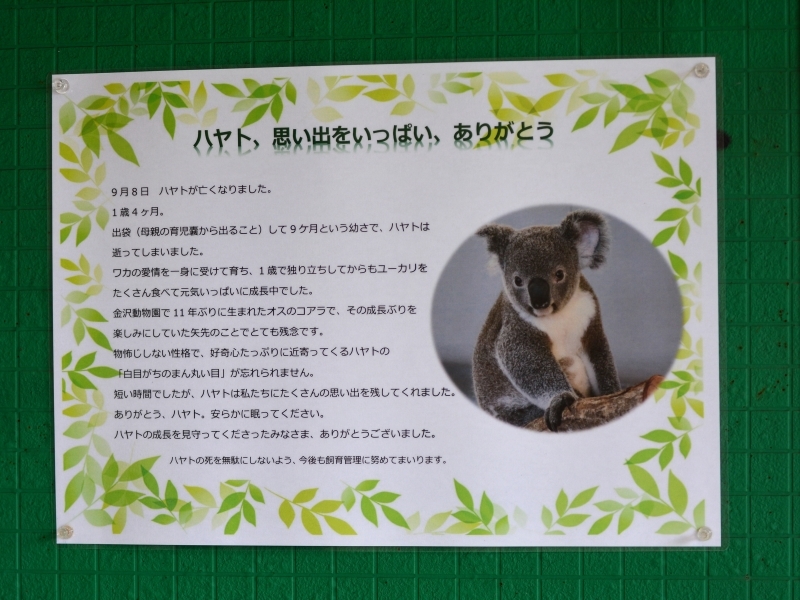 ハヤト、思い出をいっぱい、ありがとう
9月8日　ハヤトが亡くなりました。
1歳4ヶ月。
出袋（母親の育児嚢から出ること）して9ケ月という幼さで、ハヤトは
逝ってしまいました。
ワカの愛情を一身に受けて育ち、1歳で独り立ちしてからもユーカリを
たくさん食べて元気いっぱいに成長中でした。
金沢動物園で11年ぶりに生まれたオスのコアラで、その成長ぶりを
楽しみにしていた矢先のことでとても残念です。
物怖じしない性格で、好奇心たっぷりに近寄ってくるハヤトの
「白目がちのまん丸い目」が忘れられません。
短い時間でしたが、ハヤトは私たちにたくさんの思い出を残してくれました。
ありがとう、ハヤト。安らかに眠ってください。
ハヤトの成長を見守ってくださったみなさま、ありがとうございました。
ハヤトの死を無駄にしないよう、今後も飼育管理に努めてまいります。